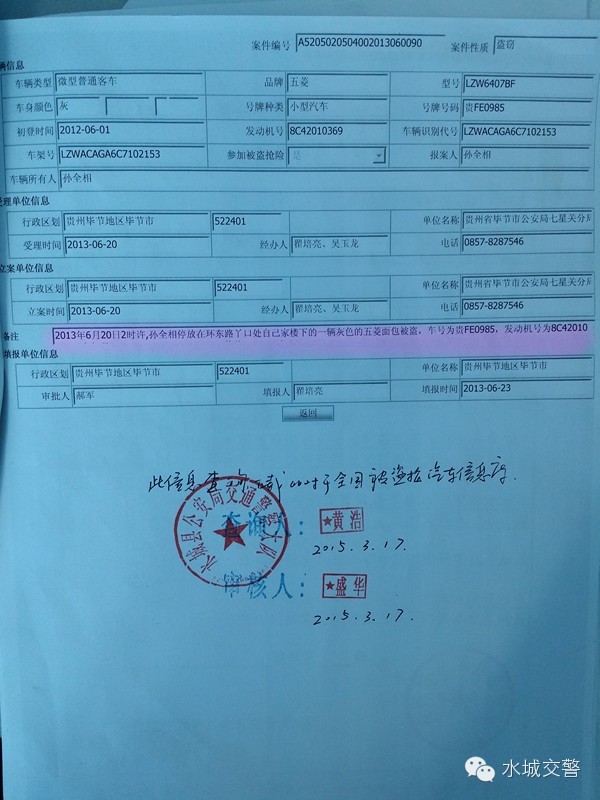 案件编号 A5205020504002013060090 案件性质 盗窃
辆信息
车辆类型 微型普通客车 品牌 五菱 型号 LZW6407BF
车身颜色 灰 号牌种类 小型汽车 号牌号码 贵FE0985
初登时间 2012-06-01 发动机号 8C42010369 车辆识别代号 LZWACAGA6C7102153
车架号 LZWACAGA6C7102153 参加被盗抢险 是 报案人 孙全相
车辆所有人 孙全相
受理单位信息
行政区划 贵州毕节地区毕节市 522401 单位名称 贵州省毕节市公安局七星关分局
受理时间 2013-06-20 经办人 翟培亮、吴玉龙 电话 0857-8287546
立案单位信息
行政区划 贵州毕节地区毕节市 522401 单位名称 贵州省毕节市公安局七星关分局
立案时间 2013-06-20 经办人 翟培亮、吴玉龙 电话 0857-8287546
备注 2013年6月20日2时许,孙全相停放在环东路丫口处自己家楼下的一辆灰色的五菱面包被盗，车号为贵FE0985，发动机号为8C42010
填报单位信息
行政区划 贵州毕节地区毕节市 522401 单位名称 贵州毕节地区毕节市
审批人 郝军 填报人 翟培亮 填报时间 2013-06-23
返回
此信息查询下载于全国被盗抢汽车信息库.
水城县公安局交通警察大队
查询人： ★黄浩
2015.3.17.
审核人： ★盛华
2015.3.17.
水城交警